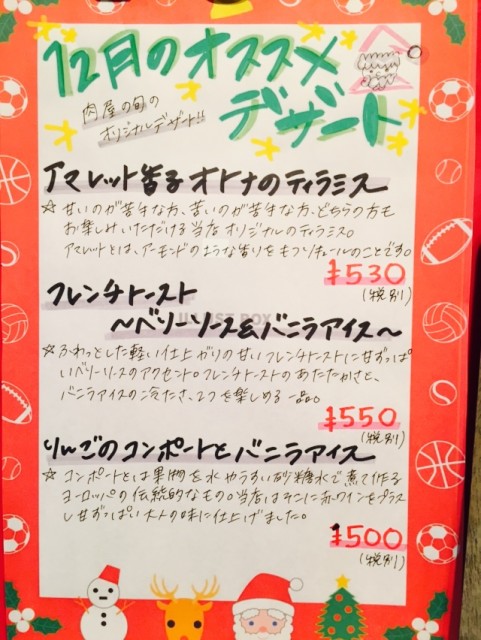 12月のオススメ
デザート
肉屋の旬の
オリジナルデザート!!
アマレット香る オトナのティラミス
☆ 甘いのが苦手な方、苦いのが苦手な方、どちらの方も
お楽しみいただける当店オリジナルのティラミス。
アマレットとは、アーモンドのような香りをもつリキュールのことです。
¥530
(税別)
フレンチトースト
〜ベリーソース&バニラアイス〜
☆ ふわっとした軽い仕上がりの甘いフレンチトーストに甘ずっぱ
いベリーソースのアクセント。フレンチトーストのあたたかさと、
バニラアイスの冷たさ、2つを楽しめる一品。
¥550
(税別)
りんごのコンポートとバニラアイス
☆ コンポートとは果物を水やうすい砂糖水で煮て作る
ヨーロッパの伝統的なもの。当店はそこに赤ワインをプラス
し甘ずっぱい大人の味に仕上げました。
¥500
(税別)